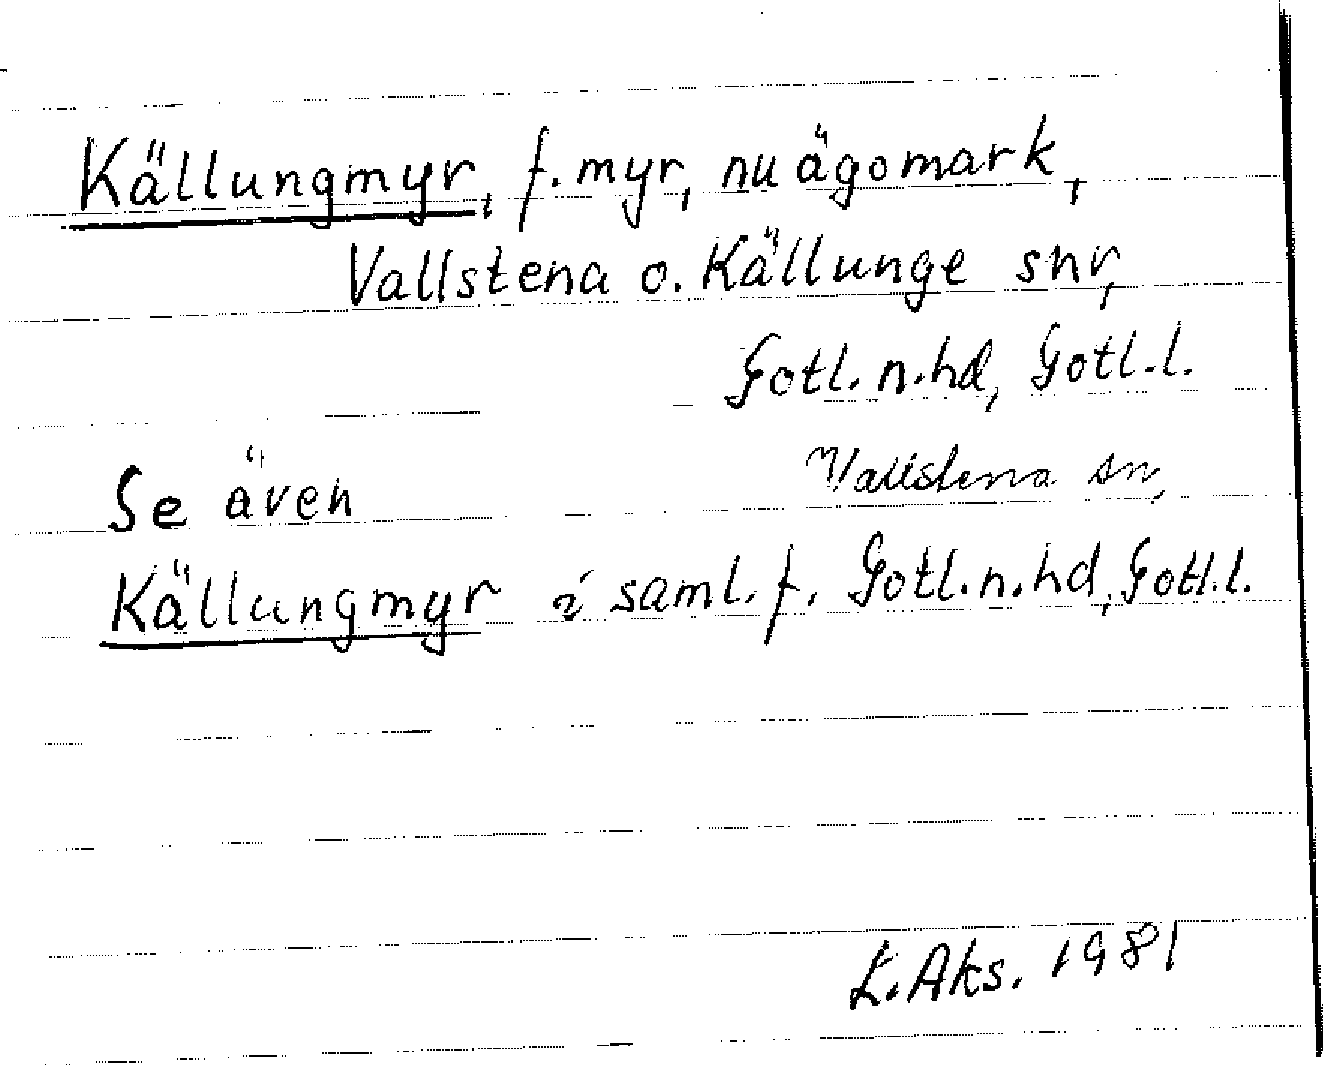 Källungmyr, f. myr, nu ägomark,
Vallstena o. Källunge snr,
Gotl. n. hd, Gotl. l.
Vallstena sn,
Se även
Källungmyr i saml. f. Gotl. n. hd, Gotl. l.
L. Aks. 1981